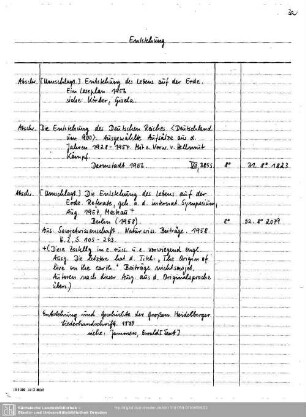 Entstehung
Abschr. [Umschlagt.] Entstehung des Lebens auf der Erde.
Ein Leseplan. 1956
siehe: Köhler, Gisela.
Abschr. Die Entstehung des Deutschen Reiches (Deutschland
um 900). Ausgewählte Aufsätze aus d.
Jahren 1928-1954. Mit e. Vorw. v. Hellmut
Kämpf.
Darmstadt 1956. 8°
Abschr. [Umschlagt.] Die Entstehung des Lebens auf der
Erde. Referate, geh. a. d. internat. Symposium,
Aug. 1957, Moskau +
Berlin (1958). 8° 32. 8° 2079
Aus: Sowjetwissenschaft. Naturwiss. Beiträge. 1958.
H. 2, S. 105-
Ausg. Die letztere hat d. Titel: The Origin of
live on the earth. Beiträge
Autoren nach dieser Ausg. aus d. Originalsprache
Entstehung und Geschichte der Großen Heidelberger
Liederhandschrift.
siehe: Jammers, Ewald